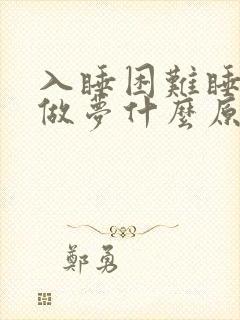 入睡困難睡
做夢什麼原
鄭勇